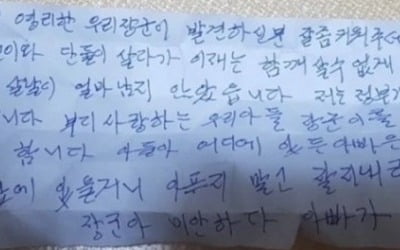 영리한 우리장군이 발견하신분 잘좀키워주
단둘이 살다가 이재는 함께 살수 없게
살날이 얼마 남지 안았 습니다 저는 정부
니다 부디 사랑하는 우리아들 장군이를
합니다 아들아 어디에 있든 아빠은
에 있을거니 아푸지 말고 잘지내
장군아 미안하다 아빠가